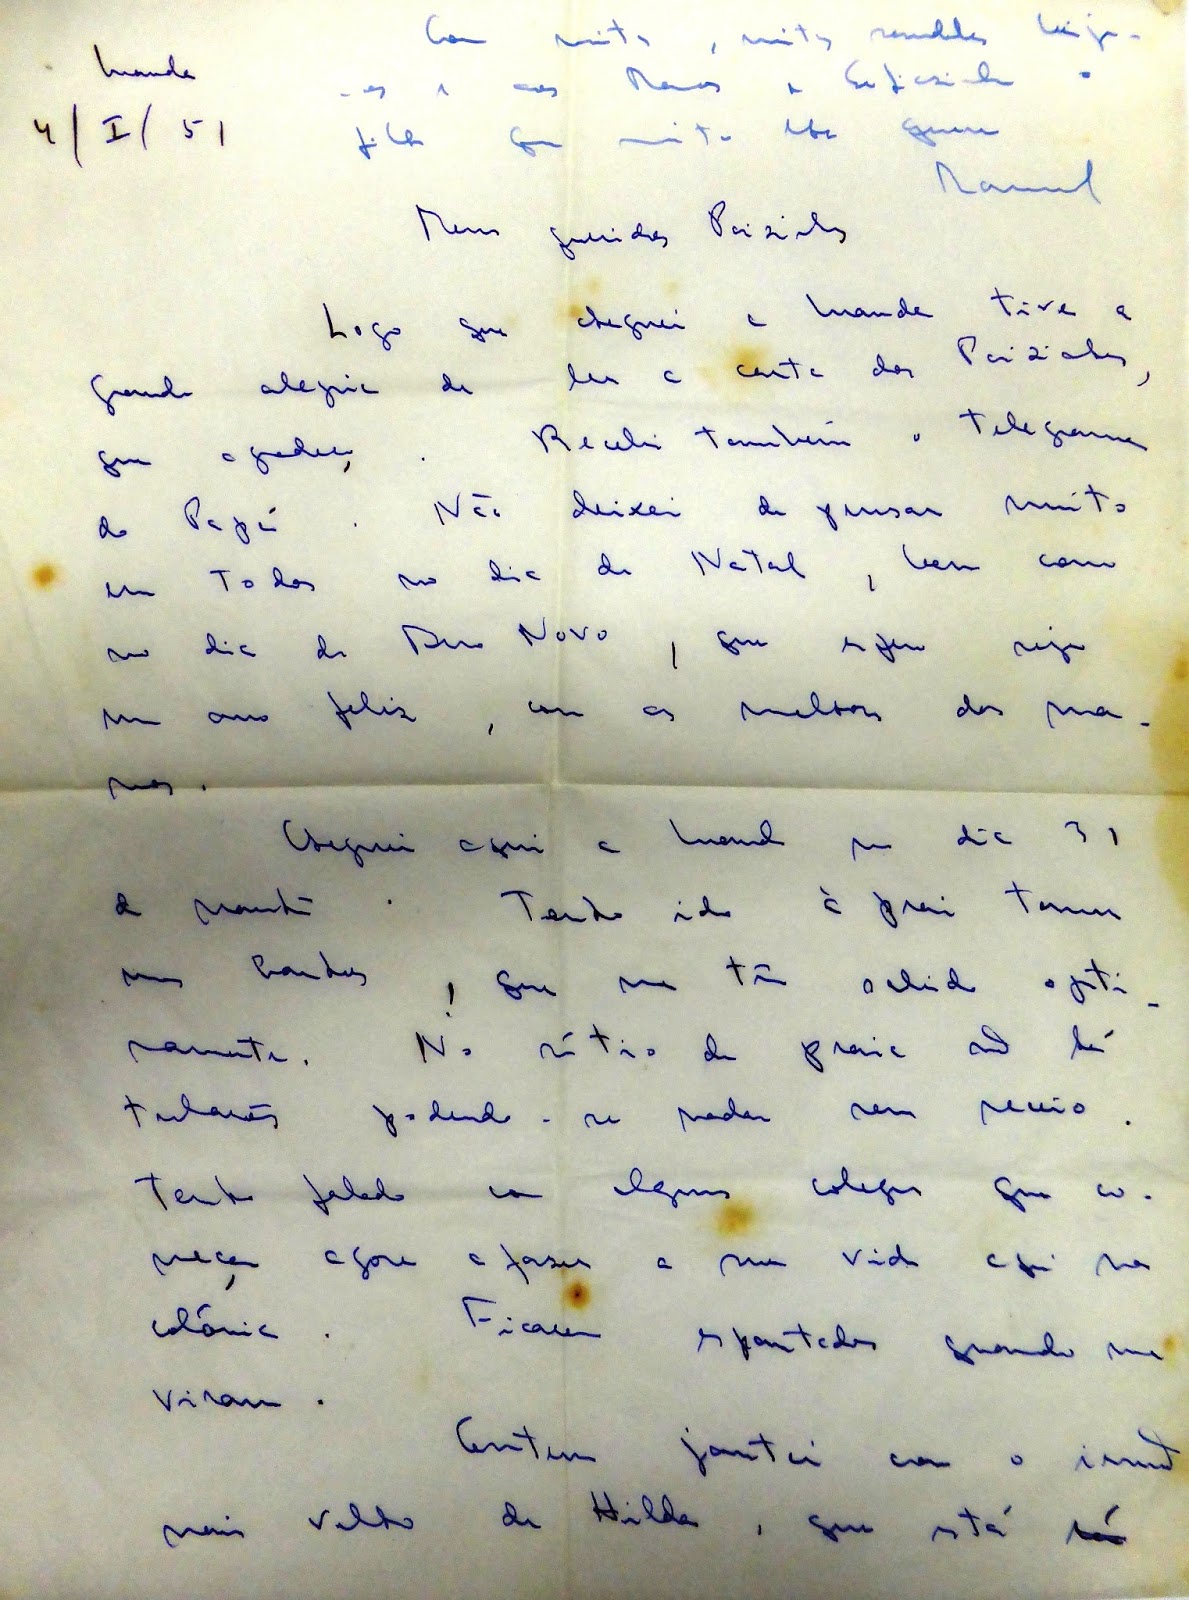 Luanda
4/I/51
Com muitas, muitas saudades beija-
-os e aos Manos e Eufrasinha o
filho que muito lhes quere
Manuel
Meus queridos Paizinhos
Logo que cheguei a Luanda tive a
grande alegria de ler a carta dos Paizinhos,
que agradeço. Recebi também o telegrama
do Papá. Não deixei de pensar muito
em todos no dia de Natal, bem como
no dia de Ano Novo, que espero seja
um ano feliz, com as melhoras dos ma-
nos.
Cheguei aqui a Luanda no dia 31
de manhã. Tenho ido à praia tomar
uns banhos, que me têm sabido opti-
mamente. No sítio da praia não há
tubarões podendo-se nadar sem receio.
Tenho falado com alguns colegas que co-
meçam agora a fazer a sua vida aqui na
colónia. Ficaram espantados quando me
viram.
Ontem jantei com o irmão
mais velho da Hilda, que está